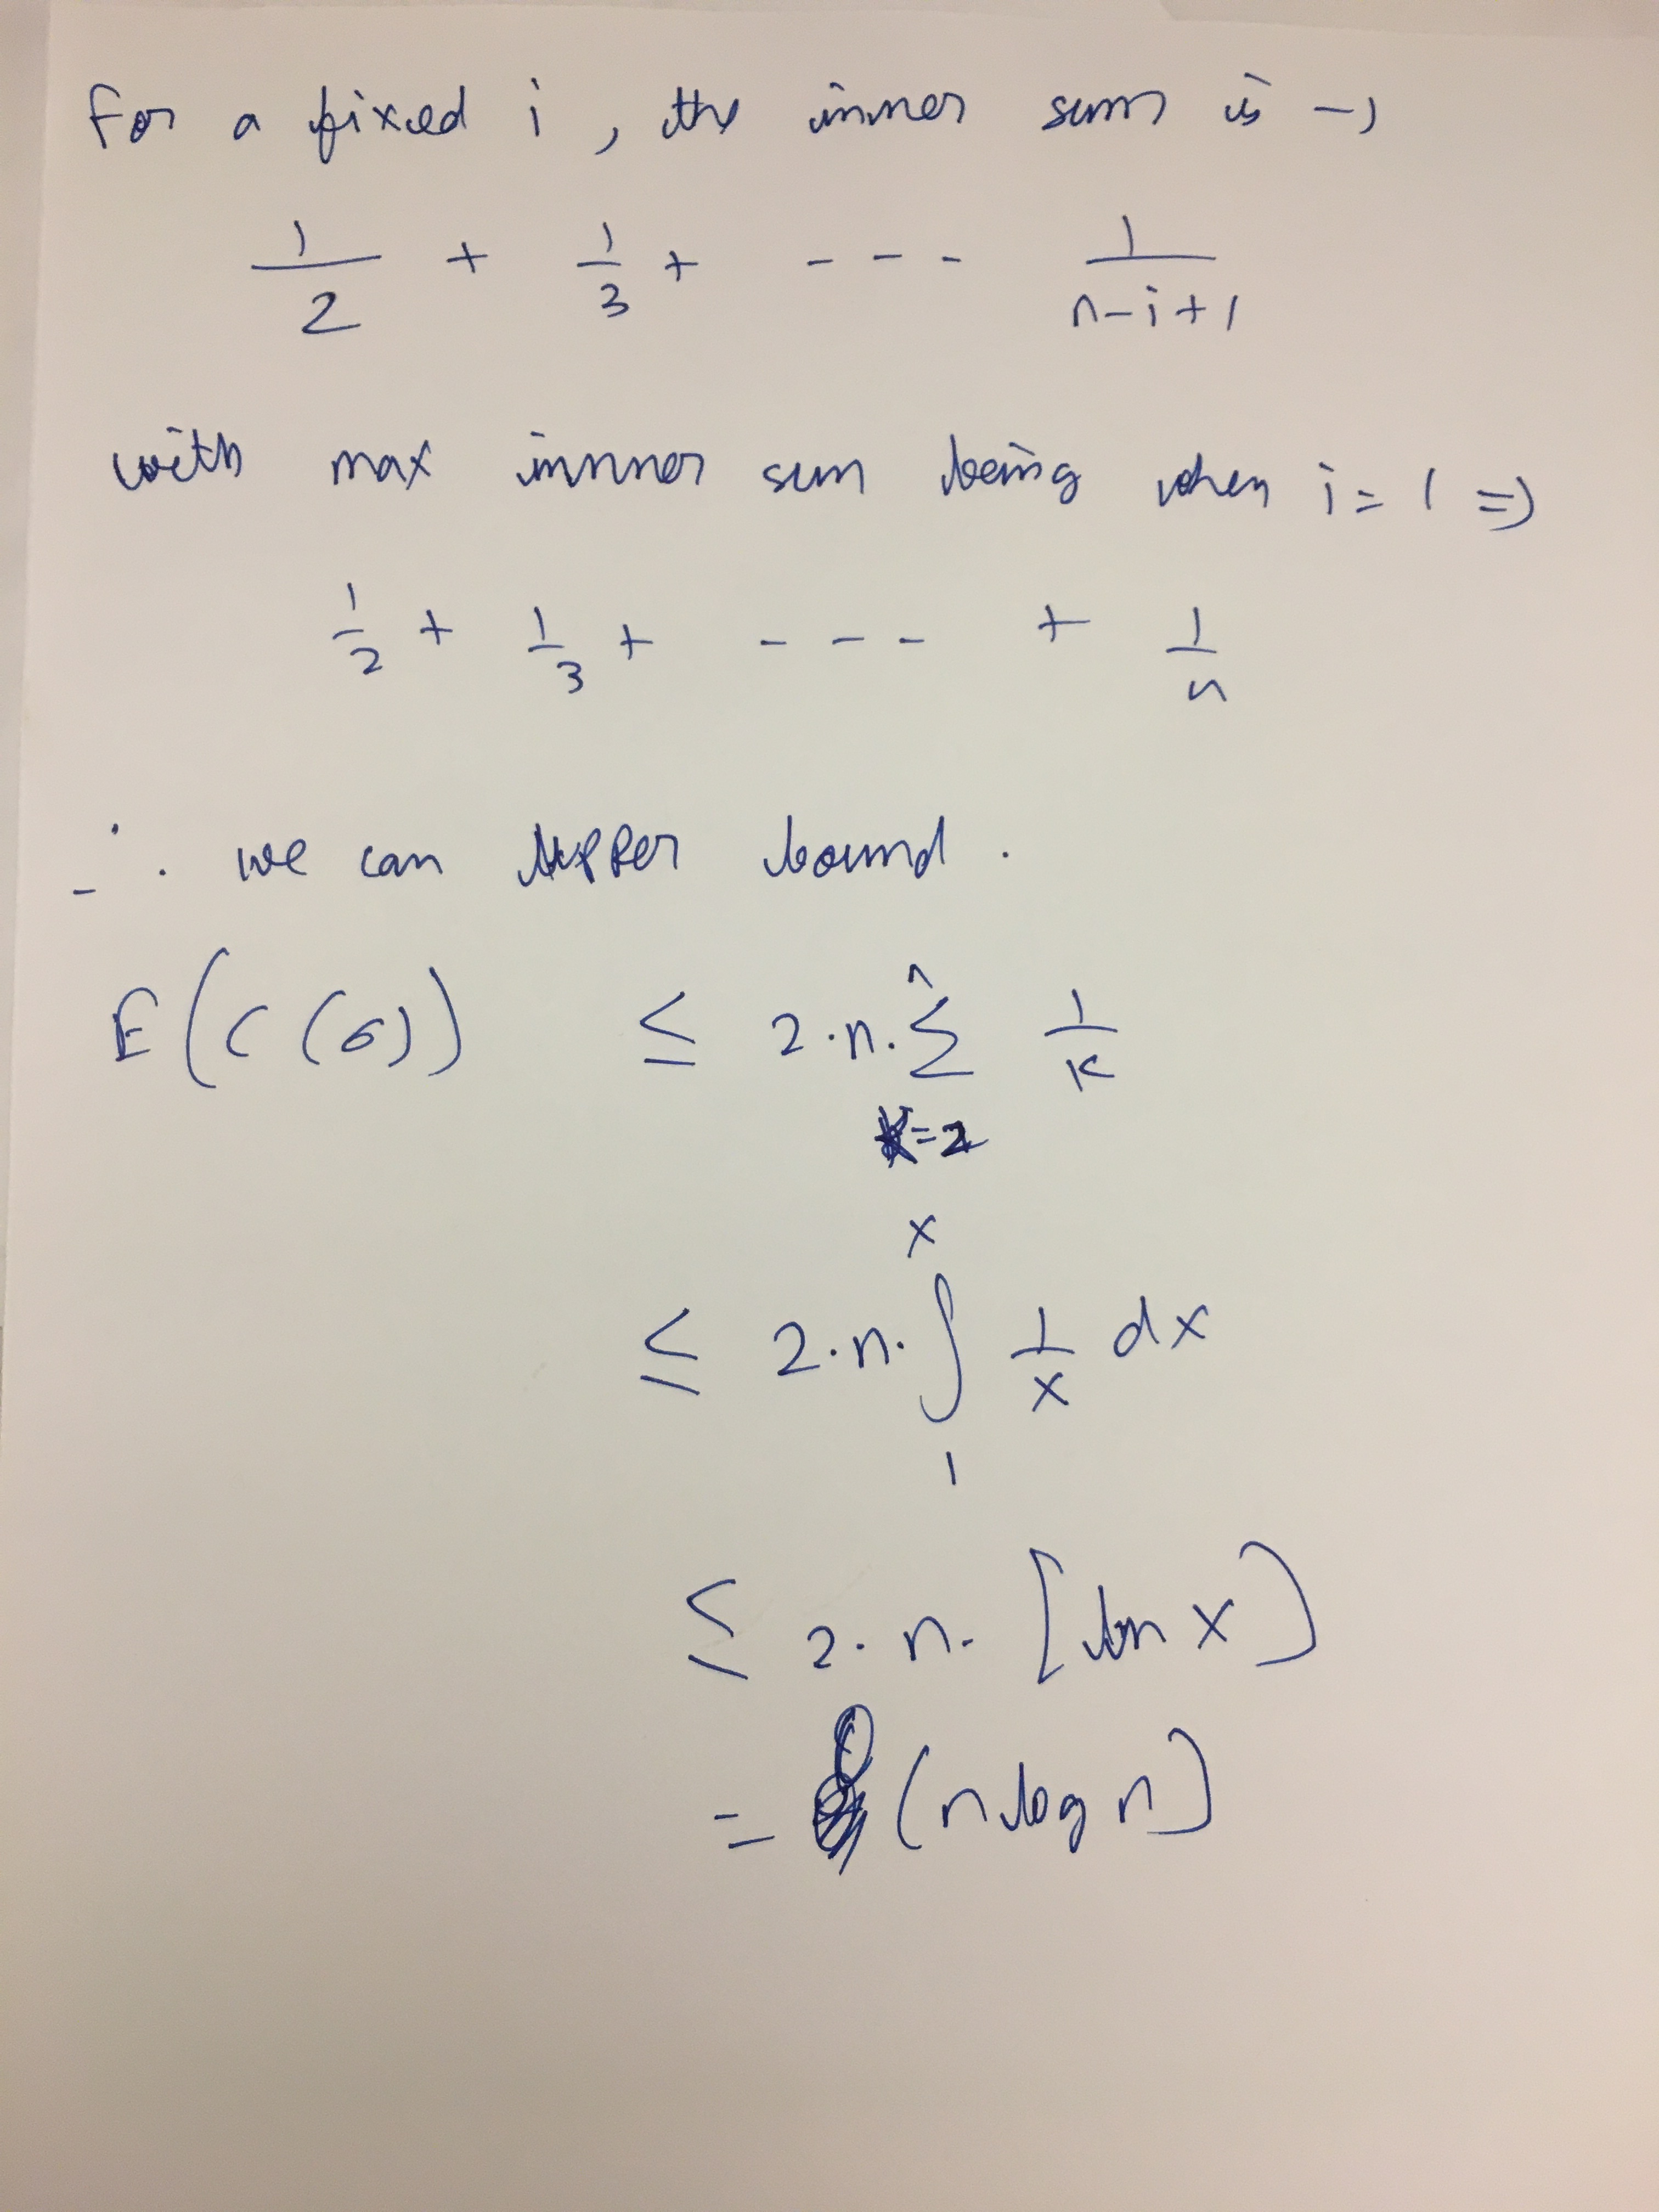 For a fixed i, the inner sum is →
1/2 + 1/3 + - - - 1/(n-i+1)
with max innner sum being when i = 1 ⇒
1/2 + 1/3 + - - - + 1/n
∴ we can upper bound.
E(C(σ)) ≤ 2·n·∑_{k=2}^{n} 1/k
≤ 2·n·∫_{1}^{x} 1/x dx
≤ 2·n·[ln x]
= O(n log n)